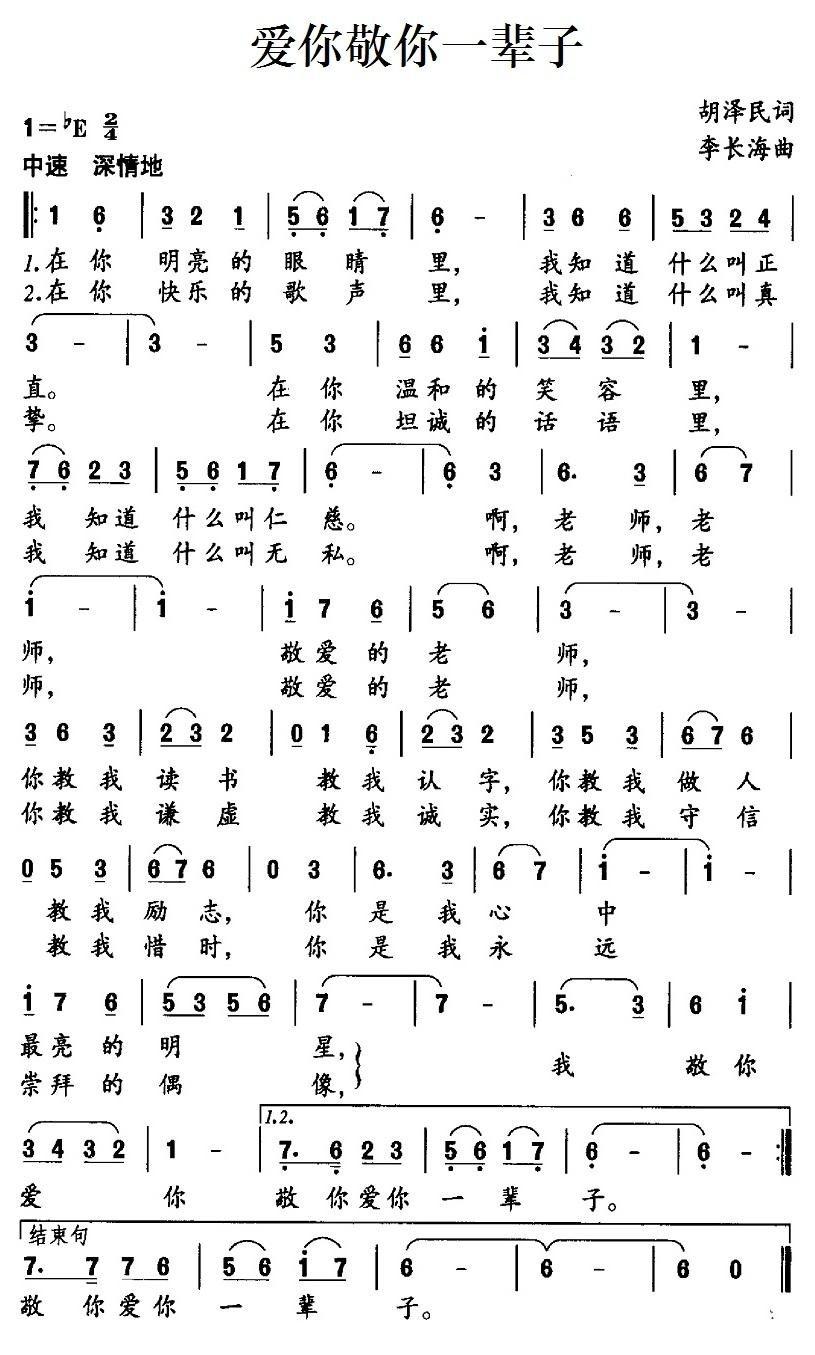 爱你敬你一辈子
胡泽民词
1=♭E 2/4
李长海曲
中速 深情地
1 6 | 3 2 1 | 5 6 1 7 | 6 - | 3 6 6 | 5 3 2 4 |
1.在你 明亮的眼睛 里, 我知道 什么叫正
2.在你 快乐的歌声 里, 我知道 什么叫真
3 - | 3 - | 5 3 | 6 6 i | 3 4 3 2 | 1 - |
直。 在你 温和的笑容 里,
挚。 在你 坦诚的话语 里,
7 6 2 3 | 5 6 1 7 | 6 - | 6 3 | 6. 3 | 6 7 |
我 知道 什么叫仁 慈。 啊, 老 师, 老
我 知道 什么叫无 私。 啊, 老 师, 老
i - | i - | i 7 6 | 5 6 | 3 - | 3 - |
师, 敬爱的老 师,
师, 敬爱的老 师,
3 6 3 | 2 3 2 | 0 1 6 | 2 3 2 | 3 5 3 | 6 7 6 |
你教我 读 书 教我 认 字, 你教我 做 人
你教我 谦 虚 教我 诚 实, 你教我 守 信
0 5 3 | 6 7 6 | 0 3 | 6. 3 | 6 7 | i - | i - |
教我 励志, 你 是 我 心 中
教我 惜时, 你 是 我 永 远
i 7 6 | 5 3 5 6 | 7 - | 7 - | 5. 3 | 6 i |
最亮的 明 星,
我 敬你
崇拜的 偶 像,
1.2.
3 4 3 2 | 1 - | 7. 6 2 3 | 5 6 1 7 | 6 - | 6 - :|
爱 你 敬你爱你 一 辈 子。
结束句
7. 7 7 6 | 5 6 i 7 | 6 - | 6 - | 6 0 ‖
敬 你爱你 一 辈 子。